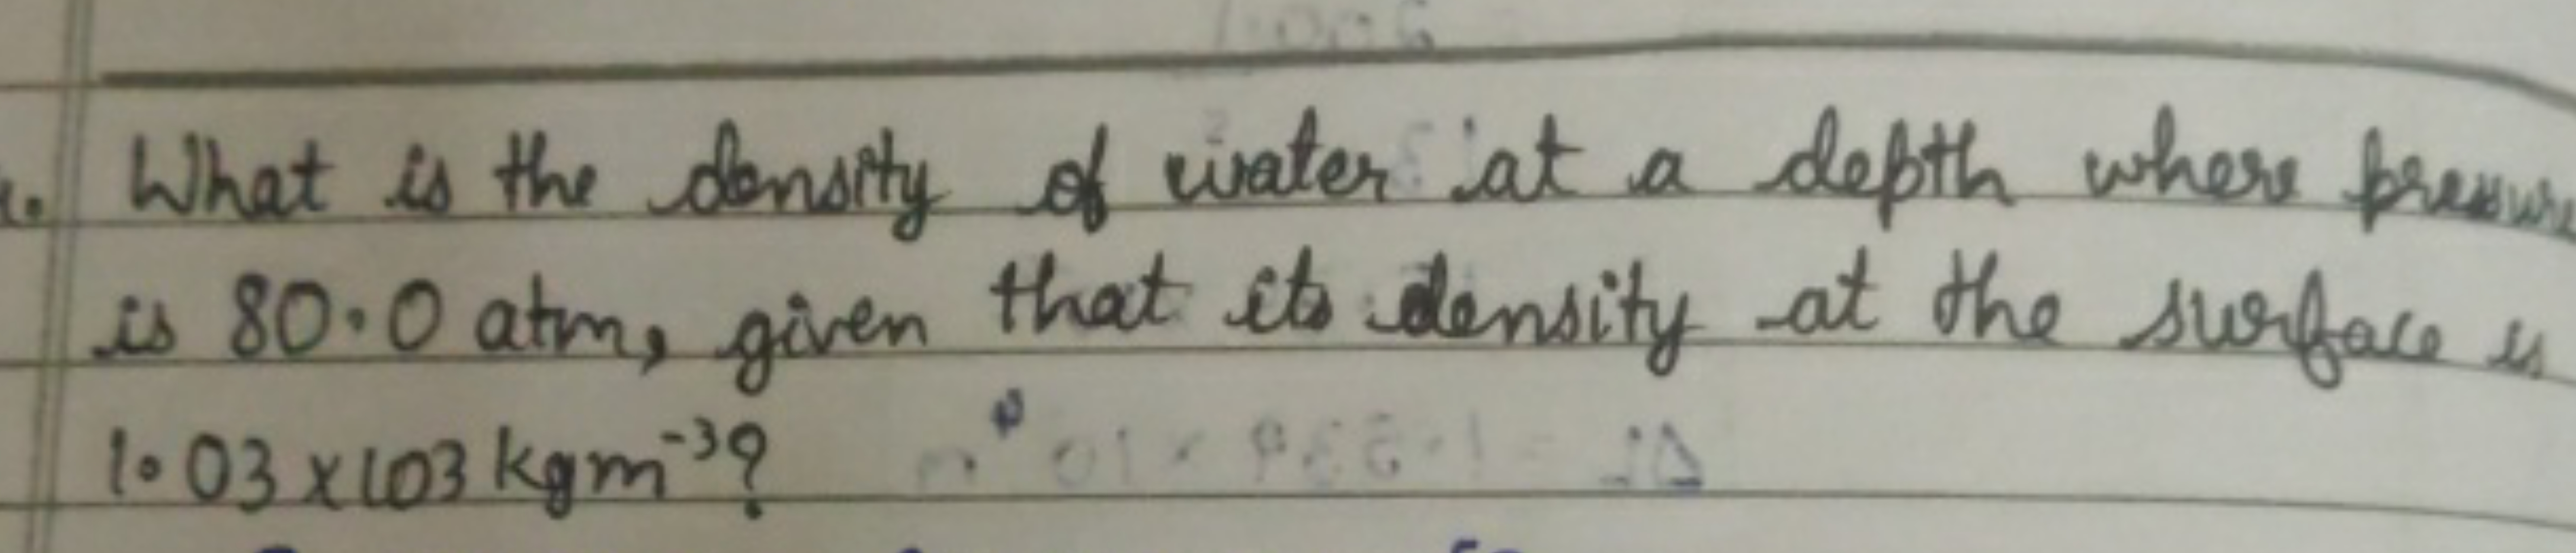 What is the density of water at a depth where pressure
is 80.0 atm, given that its density at the surface is
1.03 x 103 kgm⁻³?